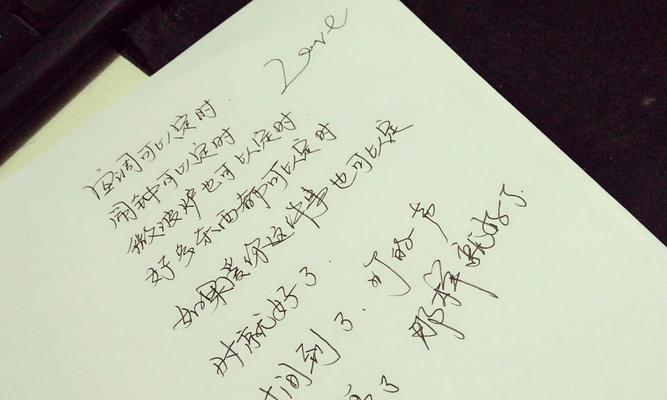 Love
空调可以定时
闹钟可以定时
微波炉也可以定时
好多东西都可以定时
如果爱你这件事也可以定
时就好了
时间到了 叮的一声
了 那样就好了